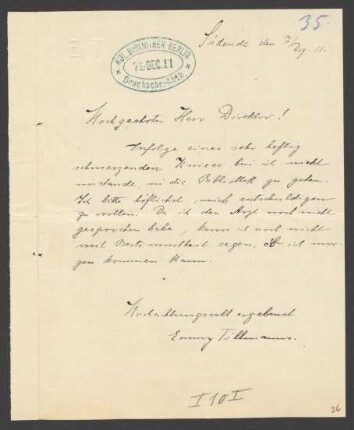 35.
Südende den 7/12. 11.
KGL. BIBLIOTHEK BERLIN
* 7. DEC. 11 *
Druckschr.-Abth.
Hochgeehrter Herr Direktor!
Infolge eines sehr heftig
schmerzenden Kniees bin ich nicht
imstande, in die Bibliothek zu gehen.
Ich bitte höflichst, mich entschuldigen
zu wollen. Da ich den Arzt noch nicht
gesprochen habe, kann ich noch nicht
mit Bestimmtheit sagen, ob ich mor-
gen kommen kann.
Hochachtungsvoll ergebenst
Emmy Tillmanns.
I 10 I
26